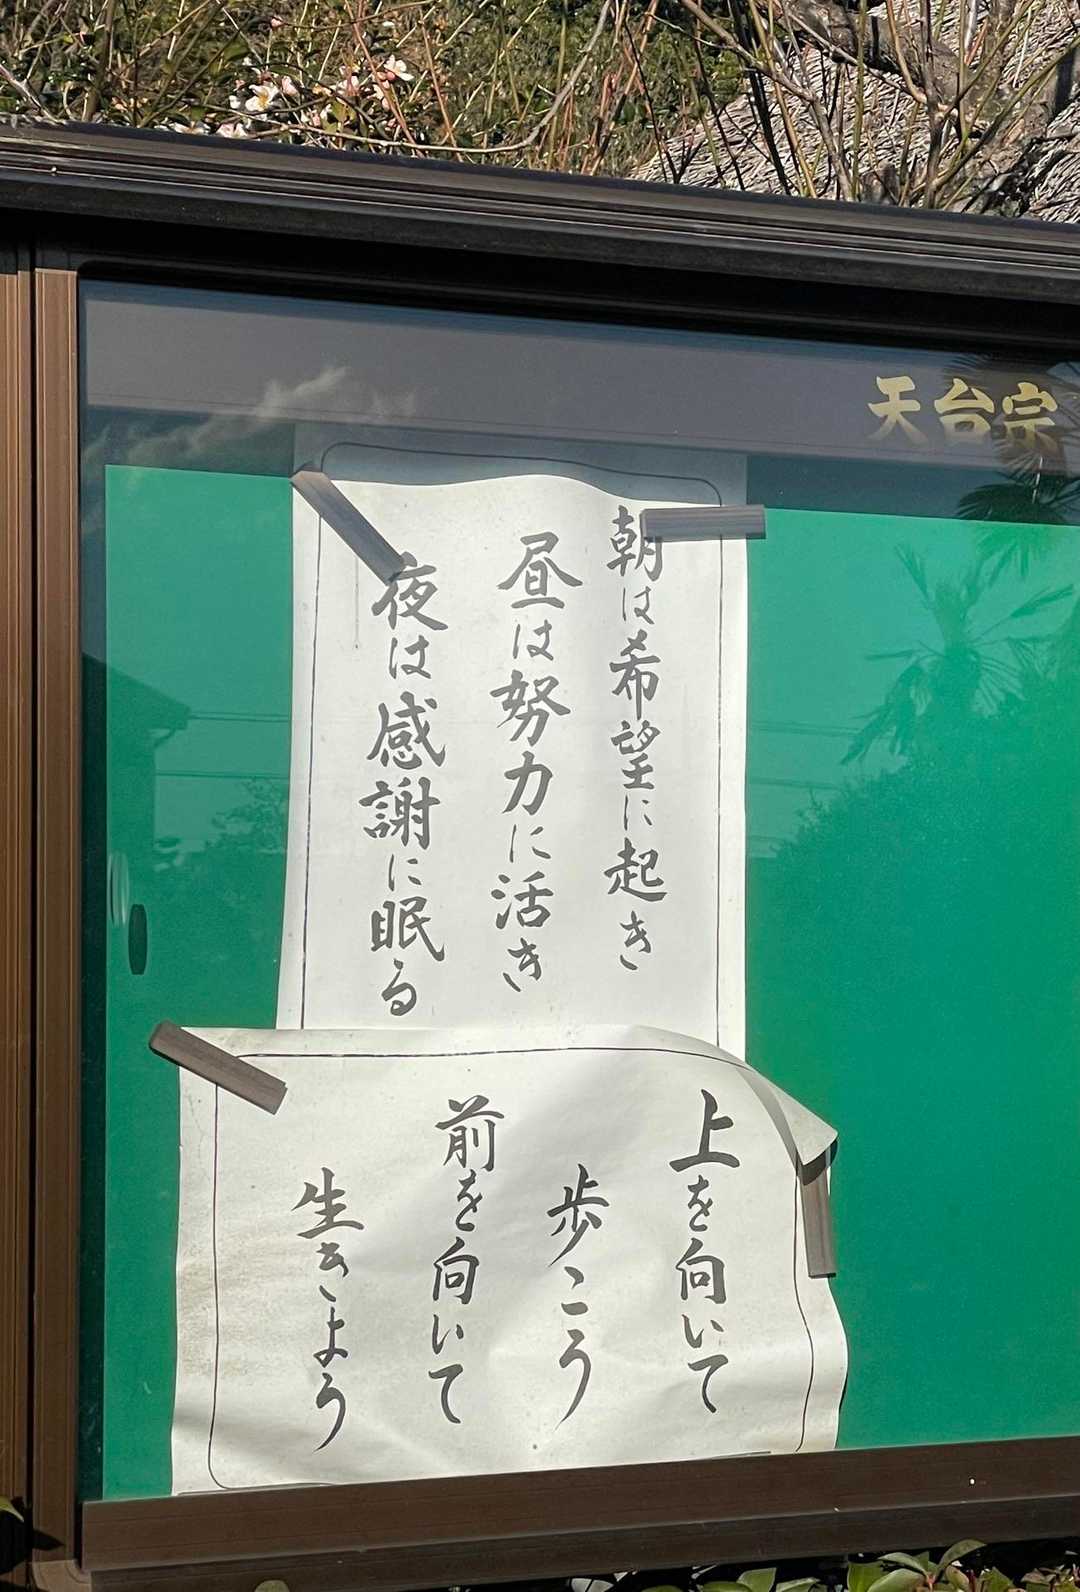 天台宗
朝は希望に起き
昼は努力に活き
夜は感謝に眠る
上を向いて
歩こう
前を向いて
生きよう